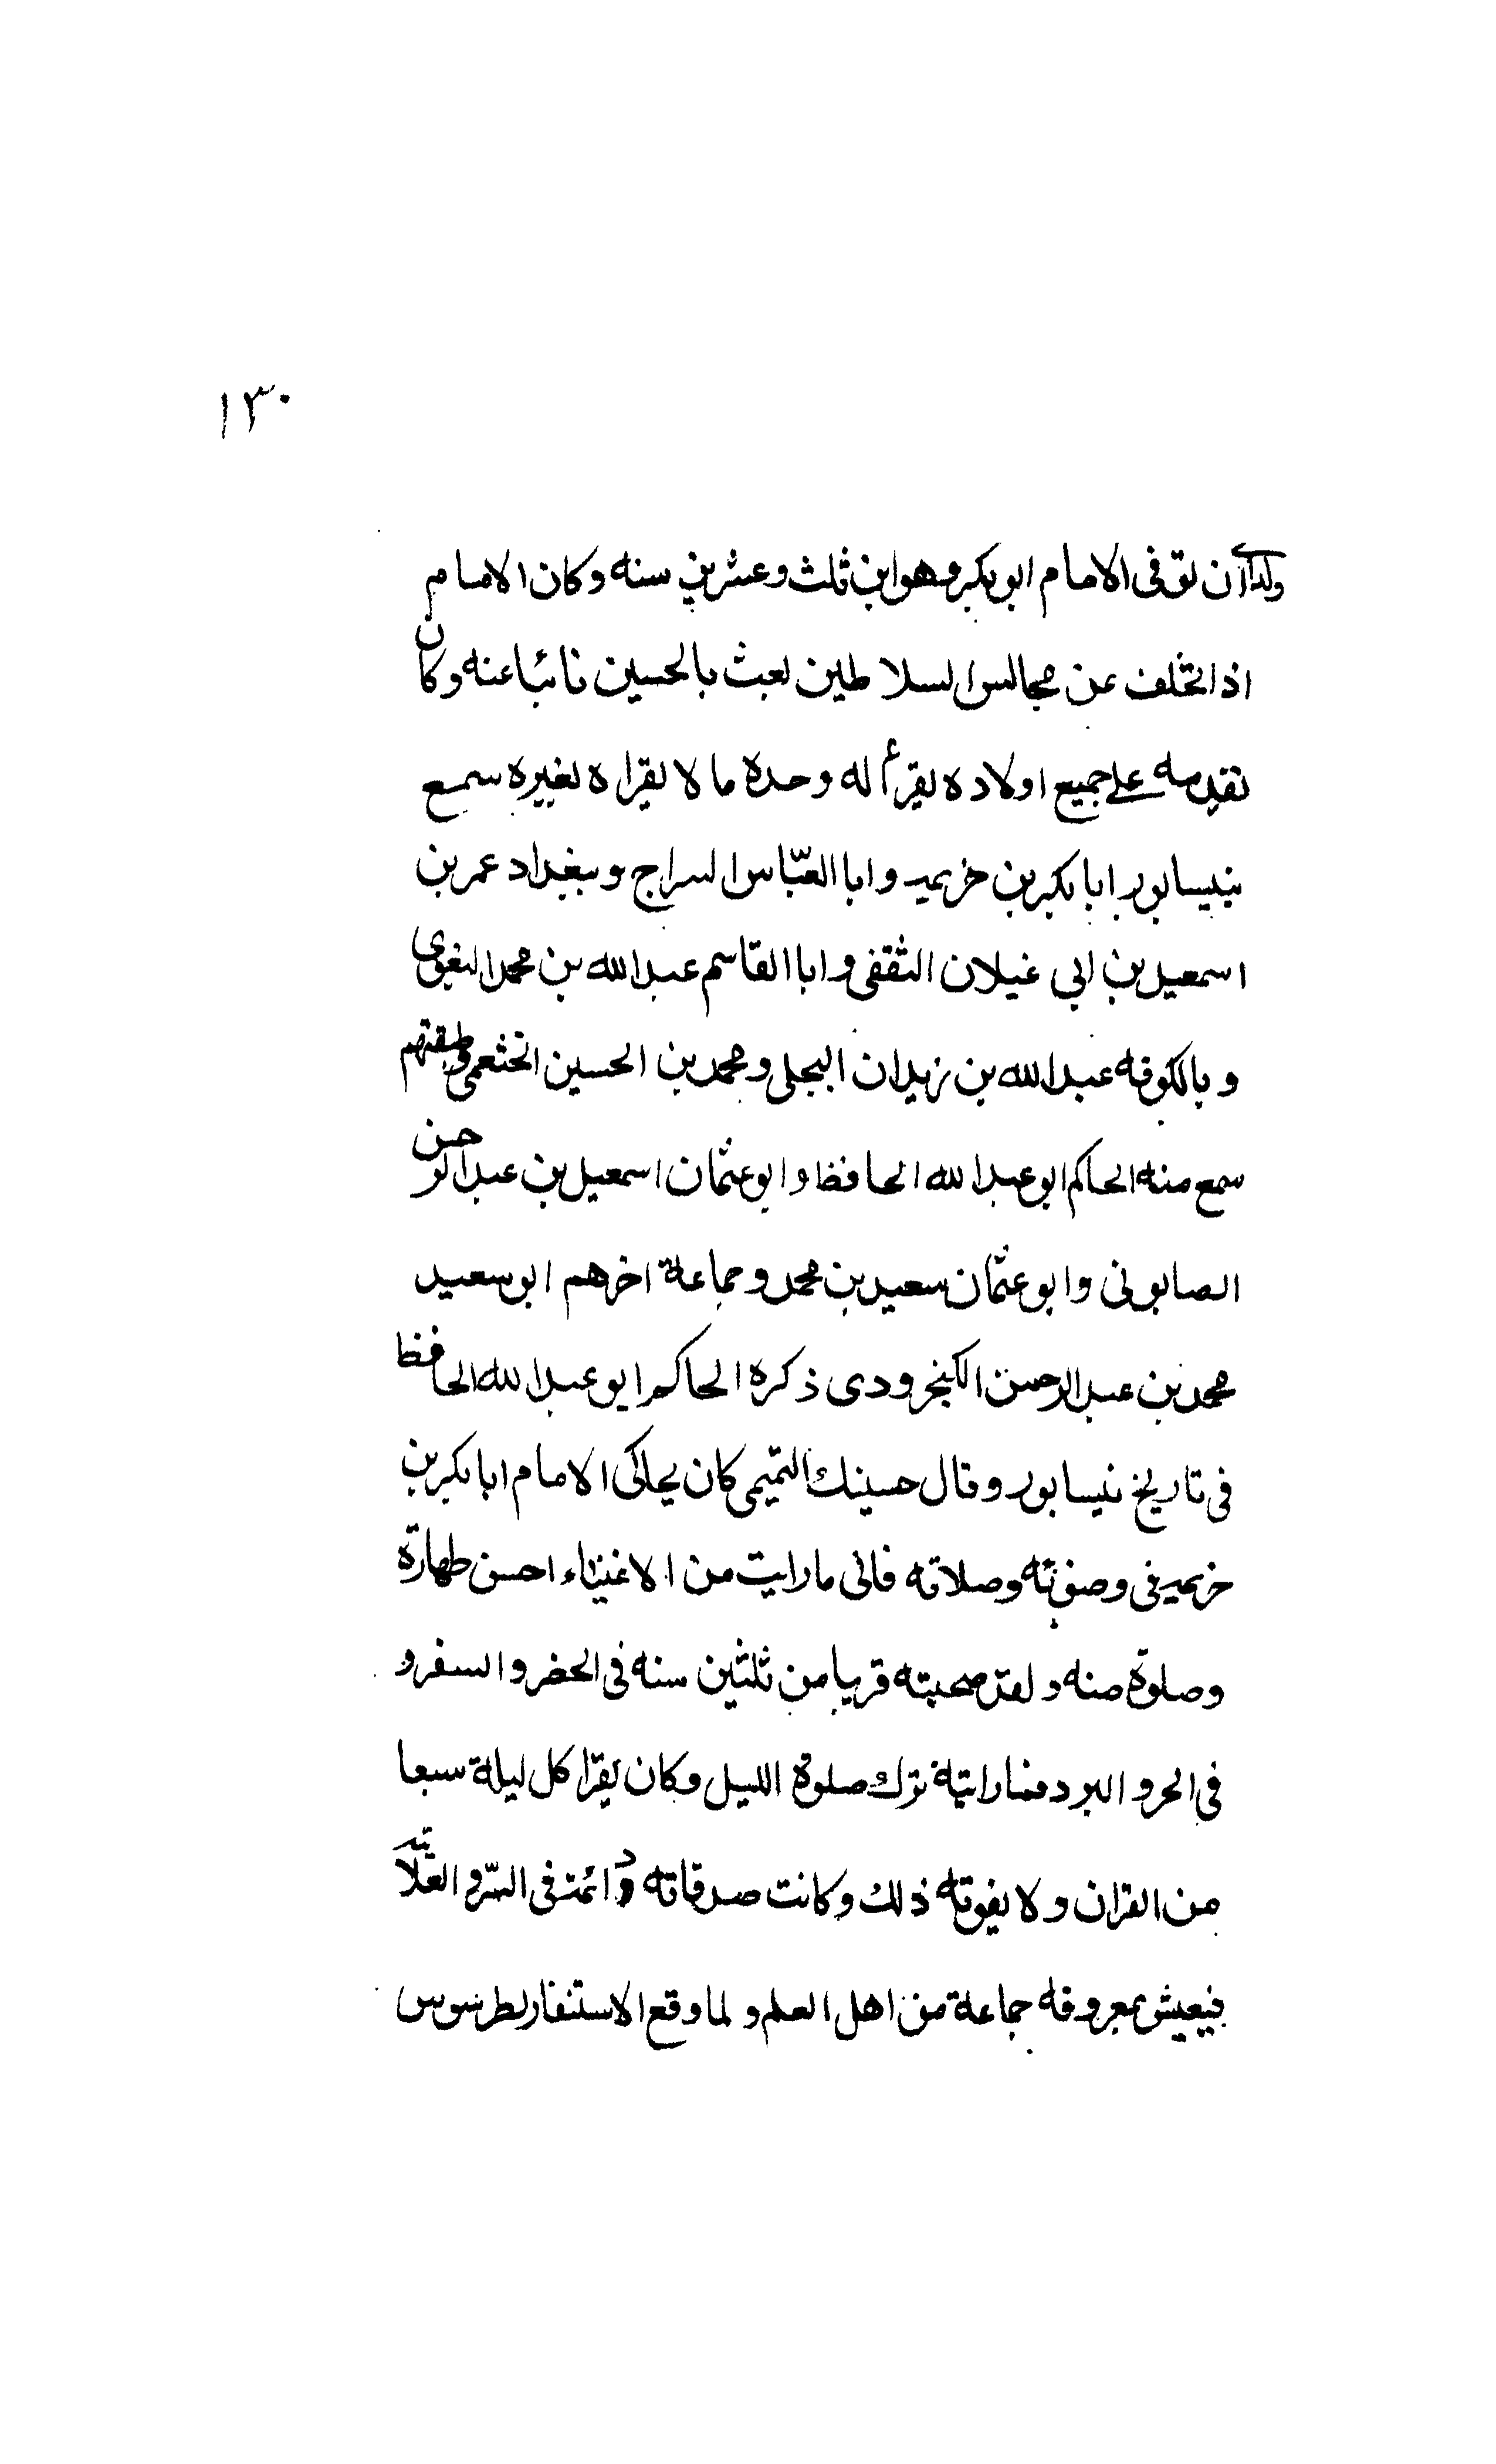 ١٣٠
ولدا ان توفى الامام ابو بكر وهو ابن ثلث وعشرين سنه وكان الامام
اذا تخلف عن مجالس السلاطين لعبث بالحسين نائبا عنه وكان
تقدمه على جميع اولاده يقرأ له وحده ما لا يقراه لغيره سمع
بنيسابور ابا بكر بن خزيمه وابا العبّاس السراج وببغداد عمر بن
اسمعيل بن ابى غيلان الثقفى وابا القاسم عبد الله بن محمد البغوى
وبالكوفه عبد الله بن زيدان البجلى ومحمد بن الحسين الخثعمى وطبقتهم
سمع منه الحاكم ابو عبد الله الحافظ وابو عثمان اسمعيل بن عبد الرحمن
الصابونى وابو عثمان سعيد بن محمد وجماعة اخرهم ابو سعيد
محمد بن عبد الرحمن الكنجرودى ذكره الحاكم ابو عبد الله الحافظ
فى تاريخ نيسابور وقال حسينك التميمى كان يحاكى الامام ابا بكر بن
خزيمه فى وصفوته وصلاته فانى ما رايت من الاغنياء احسن طهارة
وصلوة منه ولقد صحبته قريبا من ثلثين سنه فى الحضر والسفر و
فى الحر والبرد فما رايتة ترك صلوة الليل وكان يقرا كل ليلة سبعا
من القران ولا يفوته ذلك وكانت صدقاته دائمة فى السّر والعلانيه
فيعيش بمعروفه جماعة من اهل العلم ولما وقع الاستنفار لطرسوس